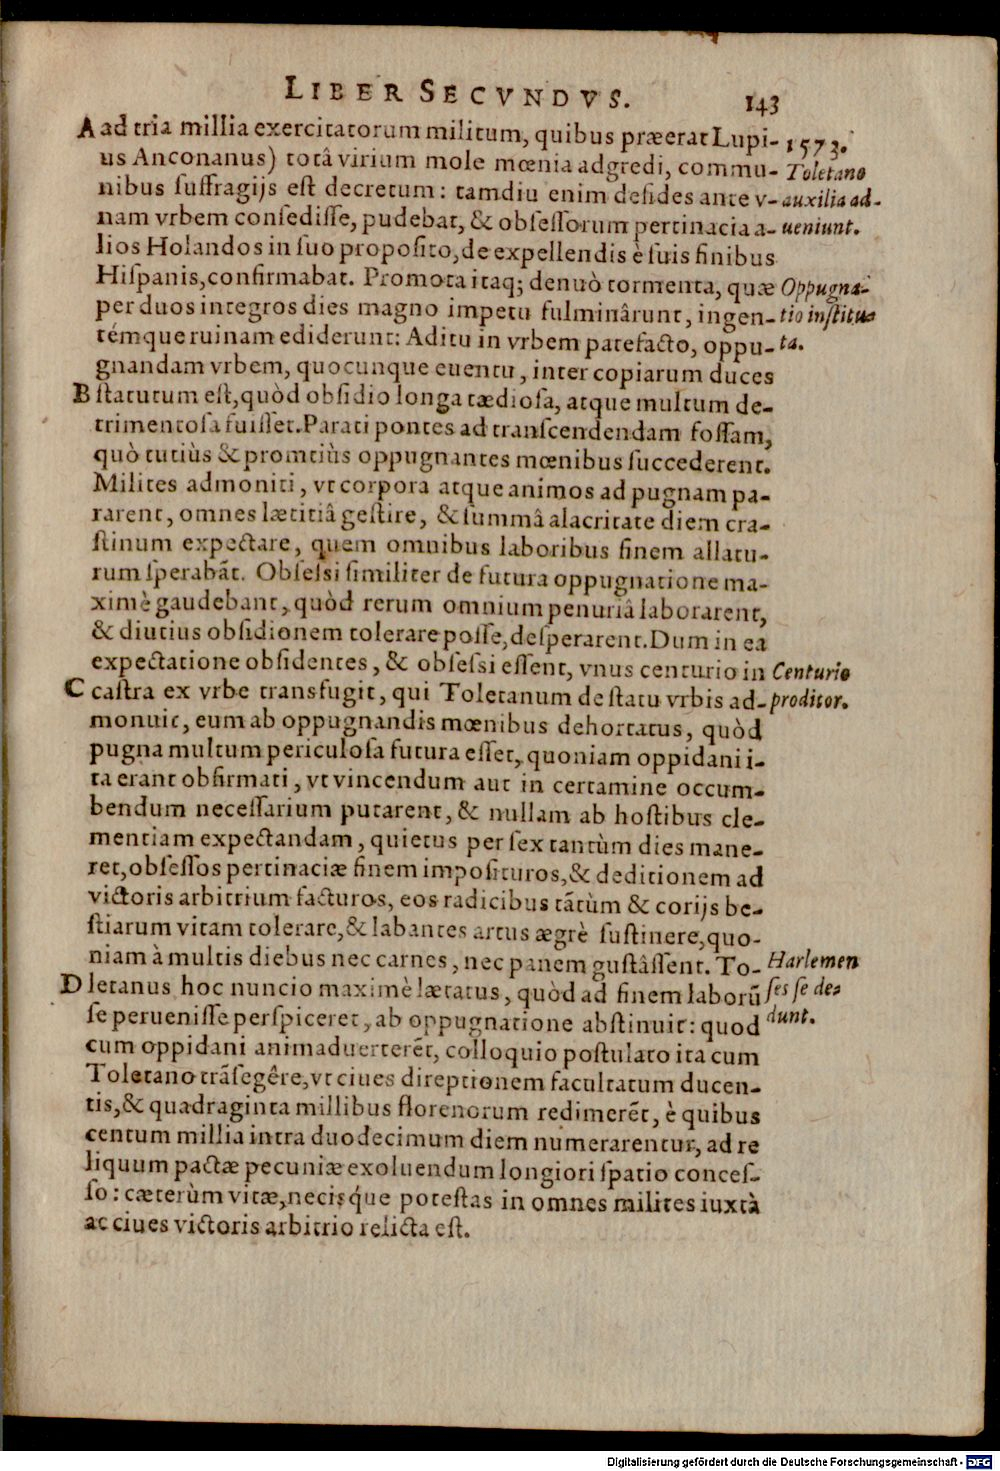 LIBER SECVNDVS. 143
A ad tria millia exercitatorum militum, quibus præerat Lupi- 1573.
us Anconanus) totâ virium mole mœnia adgredi, commu- Toletano
nibus ſuffragijs eſt decretum: tamdiu enim deſides ante v- auxilia ad-
nam vrbem conſediſſe, pudebat, & obſeſſorum pertinacia a- ueniunt.
lios Holandos in ſuo propoſito, de expellendis è ſuis finibus
Hiſpanis, confirmabat. Promota itaq; denuò tormenta, quæ Oppugna-
per duos integros dies magno impetu fulminârunt, ingen- tio inſtitu-
témque ruinam ediderunt: Aditu in vrbem patefacto, oppu- ta.
gnandam vrbem, quocunque euentu, inter copiarum duces
B ſtatutum eſt, quòd obſidio longa tædioſa, atque multum de-
trimentoſa fuiſſet. Parati pontes ad tranſcendendam foſſam,
quò tutiùs & promtiùs oppugnantes mœnibus ſuccederent.
Milites admoniti, vt corpora atque animos ad pugnam pa-
rarent, omnes lætitiâ geſtire, & ſummâ alacritate diem cra-
ſtinum expectare, quem omnibus laboribus finem allatu-
rum ſperabãt. Obſeſsi ſimiliter de futura oppugnatione ma-
ximè gaudebant, quòd rerum omnium penuriâ laborarent,
& diutius obſidionem tolerare poſſe, deſperarent. Dum in ea
expectatione obſidentes, & obſeſsi eſſent, vnus centurio in Centurio
C caſtra ex vrbe transfugit, qui Toletanum de ſtatu vrbis ad- proditor.
monuit, eum ab oppugnandis mœnibus dehortatus, quòd
pugna multum periculoſa futura eſſet, quoniam oppidani i-
ta erant obfirmati, vt vincendum aut in certamine occum-
bendum neceſſarium putarent, & nullam ab hoſtibus cle-
mentiam expectandam, quietus per ſex tantùm dies mane-
ret, obſeſſos pertinaciæ finem impoſituros, & deditionem ad
victoris arbitrium facturos, eos radicibus tãtùm & corijs be-
ſtiarum vitam tolerare, & labantes artus ægrè ſuſtinere, quo-
niam à multis diebus nec carnes, nec panem guſtâſſent. To- Harlemen
D letanus hoc nuncio maximè lætatus, quòd ad finem laborũ ſes ſe de-
ſe perueniſſe perſpiceret, ab oppugnatione abſtinuit: quod dunt.
cum oppidani animaduerterẽt, colloquio poſtulato ita cum
Toletano trãſegêre, vt ciues direptionem facultatum ducen-
tis, & quadraginta millibus florenorum redimerẽt, è quibus
centum millia intra duodecimum diem numerarentur, ad re
liquum pactæ pecuniæ exoluendum longiori ſpatio conceſ-
ſo: cæterùm vitæ, necisq́ue poteſtas in omnes milites iuxtà
ac ciues victoris arbitrio relicta eſt.
Digitalisierung gefördert durch die Deutsche Forschungsgemeinschaft - DFG